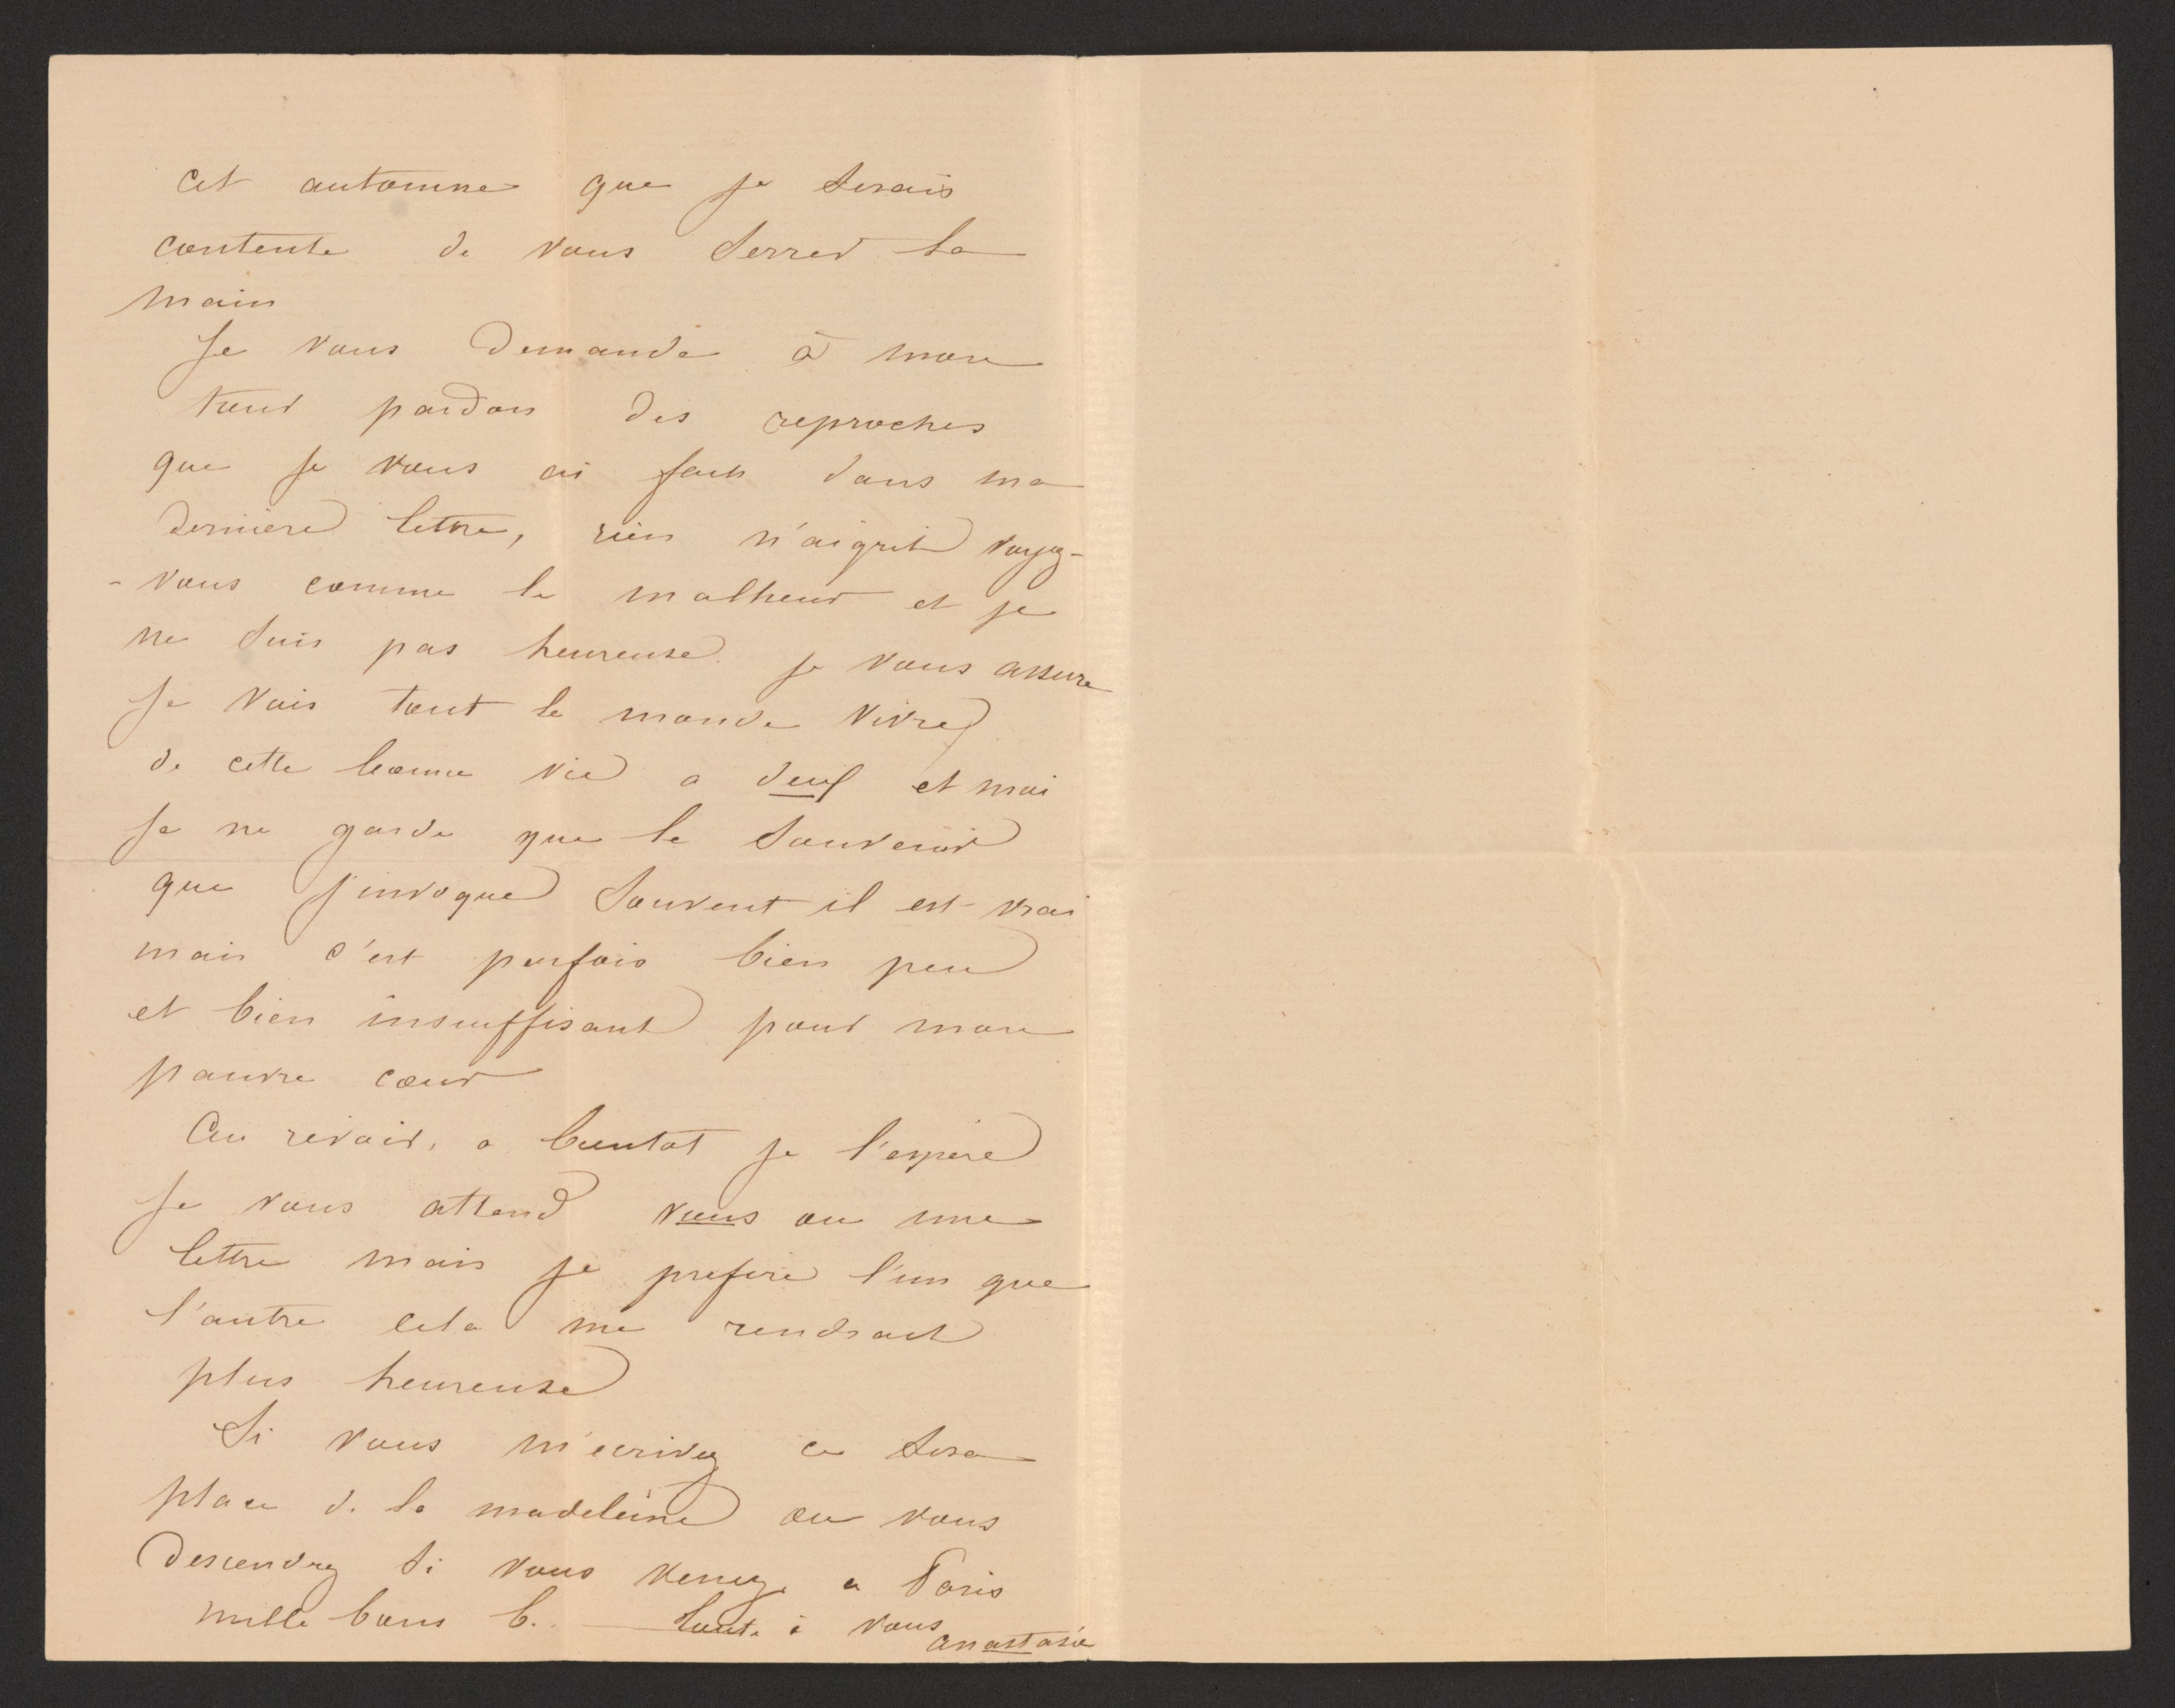 cet automne que je serais
contente de vous serrer la
main
Je vous demande à mon
tour pardon des reproches
que je vous ai faits dans ma
derniere lettre, rien n'aigrit voyez-
-vous comme le malheur et je
ne suis pas heureuse. je vous assure
Je vois tout le monde vivre
de cette bonne vie a deux et moi
Je ne garde que le souvenir
que j'invoque souvent il est vrai
mais c'est parfois bien peu
et bien insuffisant pour mon
pauvre cœur
Au revoir, a bientot je l'espere
Je vous attend vous ou une
lettre mais je prefere l'un que
l'autre cela me rendrait
plus heureuse
Si vous m'ecrivez ce sera
place de la madeleine ou vous
descendrez si vous venez a Paris
mille bons b. toute à vous
anastasie